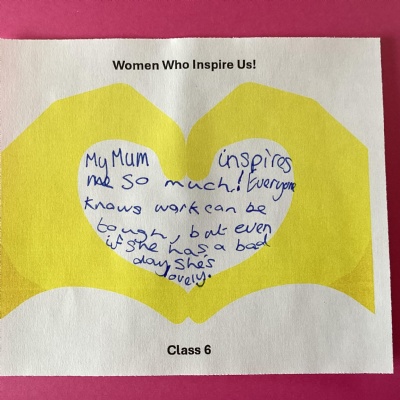 Women Who Inspire Us!
My Mum inspires
me so much! Everyone
knows work can be
tough, but even
if she has a bad
day she's
lovely.
Class 6